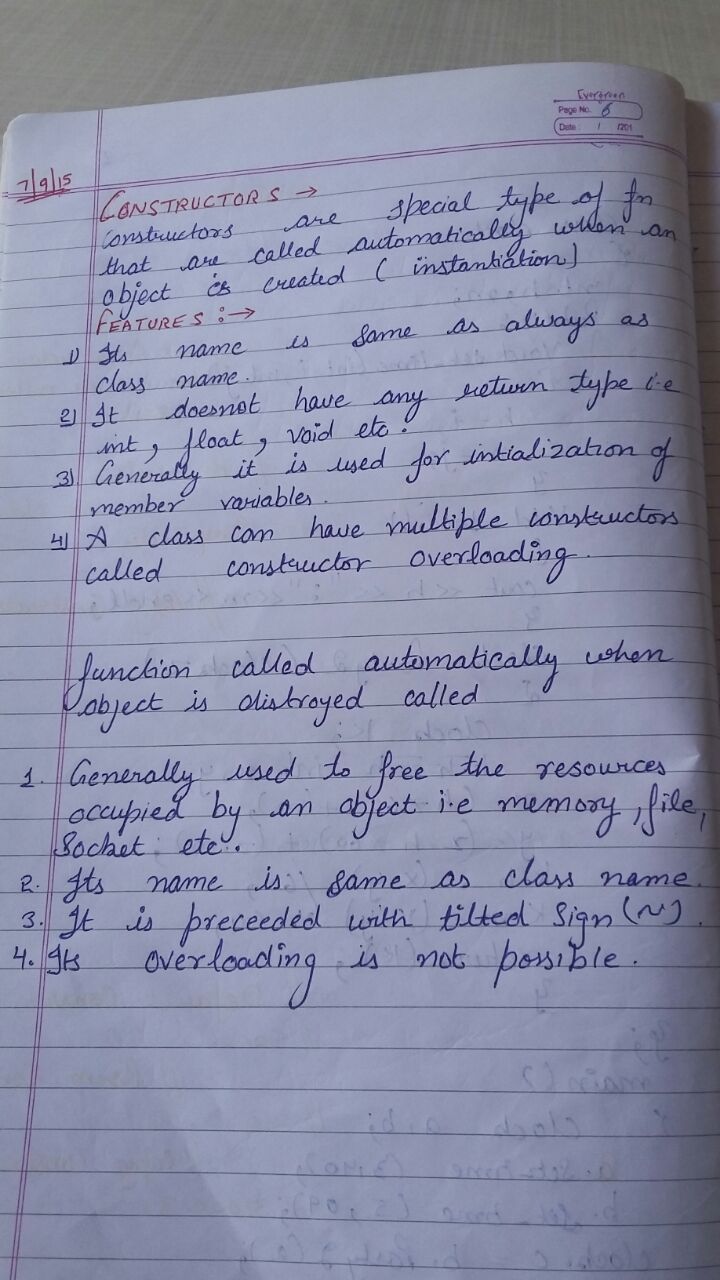 Evergreen
Page No. 6
Date: / /201
7/9/15
CONSTRUCTORS →
constructors are special type of fn
that are called automatically when an
object is created (instantiation)
FEATURES :→
1) Its name is same as always as
class name.
2) It doesnot have any return type i.e
int, float, void etc.
3) Generally it is used for intialization of
member variables.
4) A class can have multiple constructors
called constructor overloading.
function called automatically when
object is distroyed called
1. Generally used to free the resources
occupied by an object i.e memory, file,
Socket etc.
2. Its name is same as class name.
3. It is preceeded with tilted Sign (~).
4. Its overloading is not possible.